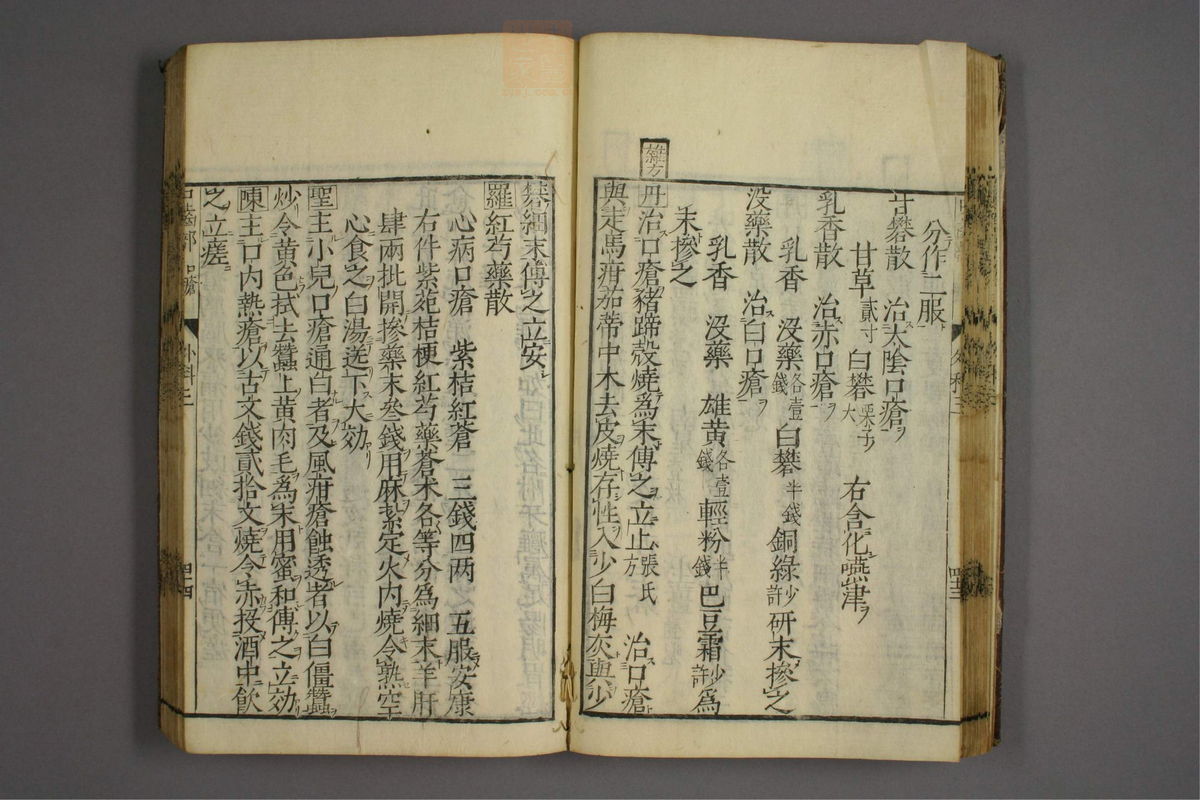 分作二服
甘礬散 治太陰口瘡
甘草貳寸 白礬栗子大 右含化嚥津
乳香散 治赤口瘡
乳香 沒藥各壹錢 白礬半錢 銅綠少許 研末摻之
沒藥散 治白口瘡
乳香 沒藥 雄黄各壹錢 輕粉半錢 巴豆霜少許 爲
末摻之
雜方
丹治口瘡豬蹄殼燒爲末傅之立止張氏方 治口瘡
與走馬疳茄蒂中木去皮燒存性入少白梅灰與少
礬細末傅之立安
羅紅芍藥散
心病口瘡 紫桔紅蒼 三錢四兩 五服安康
右件紫菀桔梗紅芍藥蒼朮各等分爲細末羊肝
肆兩批開摻藥末叁錢用麻㯡定火内燒令熟空
心食之白湯送下大効
聖主小兒口瘡通白者及風疳瘡蝕透者以白僵蠶
炒令黄色拭去蠶上黄肉毛爲末用蜜和傅之立効
陳主口内熱瘡以古文錢貳拾文燒令赤投酒中飲
之立瘥
口齒部 口瘡
外科三
四十四
外科三
四十三